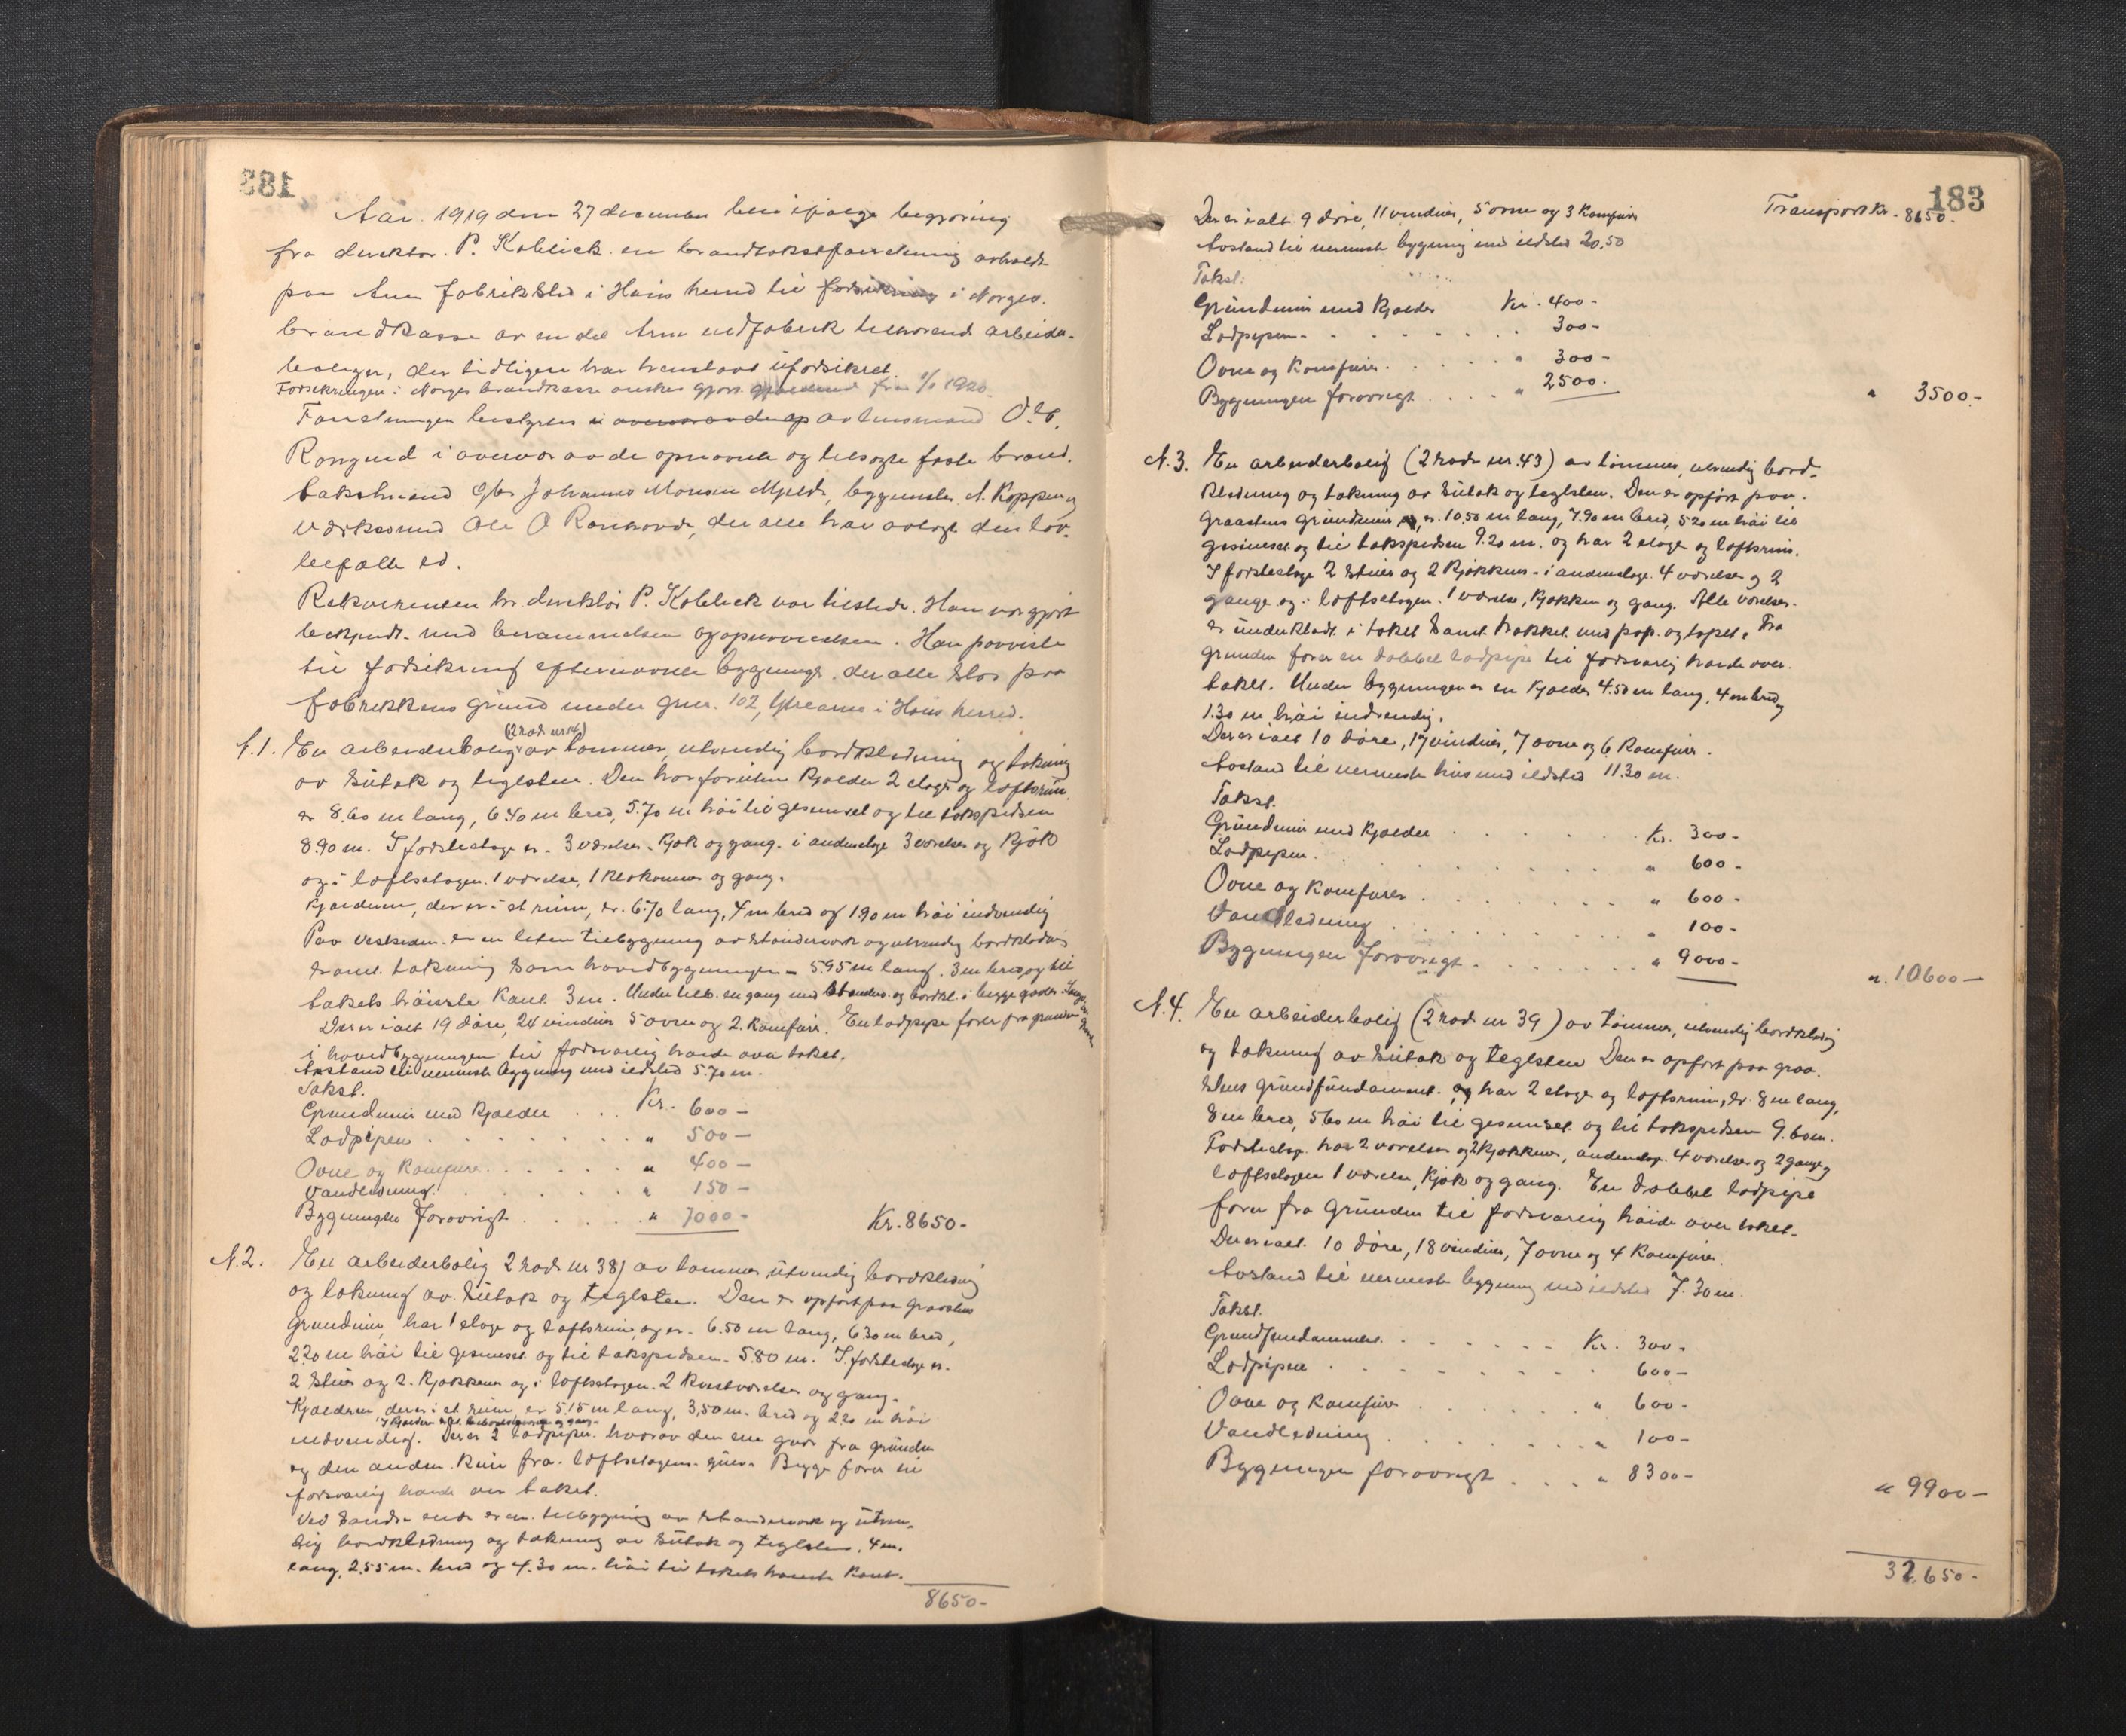 183
Aar 1919 den 27 december blev ifølge begjæring
fra direktør P. Koblick en brandtakstforretning avholdt
paa Arne fabriksted i Haus herred til forsikring i Norges
brandkasse av en del Arne uldfabrik tilhørende arbeider-
boliger, der tidligere har henstaat uforsikret.
Forsikringen i Norges brandkasse ønskes gjort gjældende fra 1/1 1920.
Forretningen bestyres i overvær av de op av lensmand O. C.
Rongved i overvær av de opnævnte og tilsagte faste brand-
takstmænd Johannes Monsen Mjelde, byggmester A. Koppen og
Ole O , der alle har avlagt den lov-
befalte ed.
Rekvirenten hr. direktør P. Koblick var tilstede. Han var gjort
bekjendt med berammelsen og opnævnelsen. Han paaviste
til forsikring efternævnte bygninger, der alle staar paa
fabrikkens grund under gnr. 102, Ytrearne i Haus herred.
N.1. En arbeiderbolig av tømmer, utvendig bordklædning og tækning
av sutak og teglsten. Den har foruten kjælder 2 etager og loftsrum,
er 8.60 m lang, 6.40 m bred, 5.70 m høi til gesimset og til takspidsen
8.90 m. I første etage er 3 værelser, kjøk og gang, i anden etage 3 værelser og kjøk
og i loftsetagen 1 værelse, 1 klækammer og gang.
Kjælderen, der er i et rum, er 6.70 lang, 4 m bred og 1.90 m høi indvendig
Paa vestsiden er en liten tilbygning av standerverk og utvendig bordklædning
samt tækning som hovedbygningen – 5.95 m lang, 3 m bred og til
takets høieste kant 3 m. Under tilb. en gang med standerv. og bordkl. i begge
Der er i alt 19 døre, 24 vinduer 5 ovne og 2 komfurer. En lodpipe fører fra grunden
i hovedbygningen til forsvarlig høide over taket.
Avstand til nærmeste bygning med ildsted 5.70 m.
Takst.
Grundmur med kjælder . . . Kr. 600 –
Lodpipen . . . . . " 500 –
Ovne og komfurer . . . . " 400 –
Vandledning . . . . . " 150 –
Bygningen forøvrigt . . . . " 7000 – Kr. 8650 –
N.2. En arbeiderbolig 2 rode nr 38) av tømmer utvendig bordklædning
og tækning av sutak og teglsten. Den er opført paa graastens
grundmur, har 1 etage og loftsrum, og er 6.50 m lang, 6.30 m bred,
2.70 m høi til gesimset og til takspidsen 5.80 m. I første etage er
2 stuer og 2 kjøkkener og i loftsetagen 2 kvistværelser og gang.
Kjælderen, der er i et rum, er 5.15 m lang, 3,50 m bred og 2.20 m høi
indvendig. Der er 2 lodpiper hvorav den ene gaar fra grunden
og den anden kun fra loftsetagens gulv. Begge fører til
forsvarlig høide over taket.
Ved søndre ende er en tilbygning av standerverk og utven-
dig bordklædning og tækning av sutak og teglsten, 4 m
lang, 2,55 m bred og 4.30 m høi til takets høieste kant.
8650 –
183
Transport Kr. 8650 –
Der er i alt 9 døre, 11 vinduer, 5 ovne og 3 komfurer
Avstand til nærmeste bygning med ildsted 20,50
Takst:
Grundmur med kjælder Kr. 400 –
Lodpipen . . . . . . 300 –
Ovne og komfurer . . . . " 300 –
Bygningen forøvrigt . . . . " 2500 – " 3500 –
N.3. En arbeiderbolig (2 rode nr. 43) av tømmer, utvendig bord-
klædning og tækning av sutak og teglsten. Den er opført paa
graastens grundmur, er 10.50 m lang, 7.90 m bred, 5.20 m høi til
gesimset og til takspidsen 9.20 m. og har 2 etager og loftsrum.
I første etage 2 stuer og 2 kjøkkener – i anden etage 4 værelser og 2
gange og i loftsetagen 1 værelse, kjøkken og gang. Alle værelser
er underklædt i taket samt trukket med pap og tapet. Fra
grunden fører en dobbel lodpipe til forsvarlig høide over
taket. Under bygningen er en kjælder 4.50 m lang, 4 m bred og
1.30 m høi indvendig.
Der er i alt 10 døre, 17 vinduer, 7 ovne og 6 komfurer.
Avstand til nærmeste hus med ildsted 11.30 m.
Takst.
Grundmur med kjælder . . . . Kr. 300 –
Lodpipen . . . . . . " 600 –
Ovne og komfurer . . . . . " 600 –
Vandledning . . . . . . " 100 –
Bygningen forøvrigt . . . . . " 9000 – " 10600 –
N.4. En arbeiderbolig (2 rode nr 39) av tømmer, utvendig bordklædning
og tækning av sutak og teglsten Den er opført paa graa-
stens grundfundament og har 2 etager og loftsrum, er 8 m lang,
8 m bred, 5.60 m høi til gesimset og til takspidsen 9.60 m.
Første etage har 2 værelser og 2 kjøkkener, anden etage 4 værelser og 2 gange og
loftsetagen 1 værelse, kjøk og gang. En dobbel lodpipe
fører fra grunden til forsvarlig høide over taket.
Der er i alt 10 døre, 18 vinduer, 7 ovne og 4 komfurer.
Avstand til nærmeste bygning med ildsted 7.30 m.
Takst.
Grundfundament . . . . Kr. 300 –
Lodpipen . . . . . . 600 –
Ovne og komfurer . . . . " 600 –
Vandledning . . . . . " 100 –
Bygningen forøvrigt . . . " 8300 – " 9900 –
32.650 –